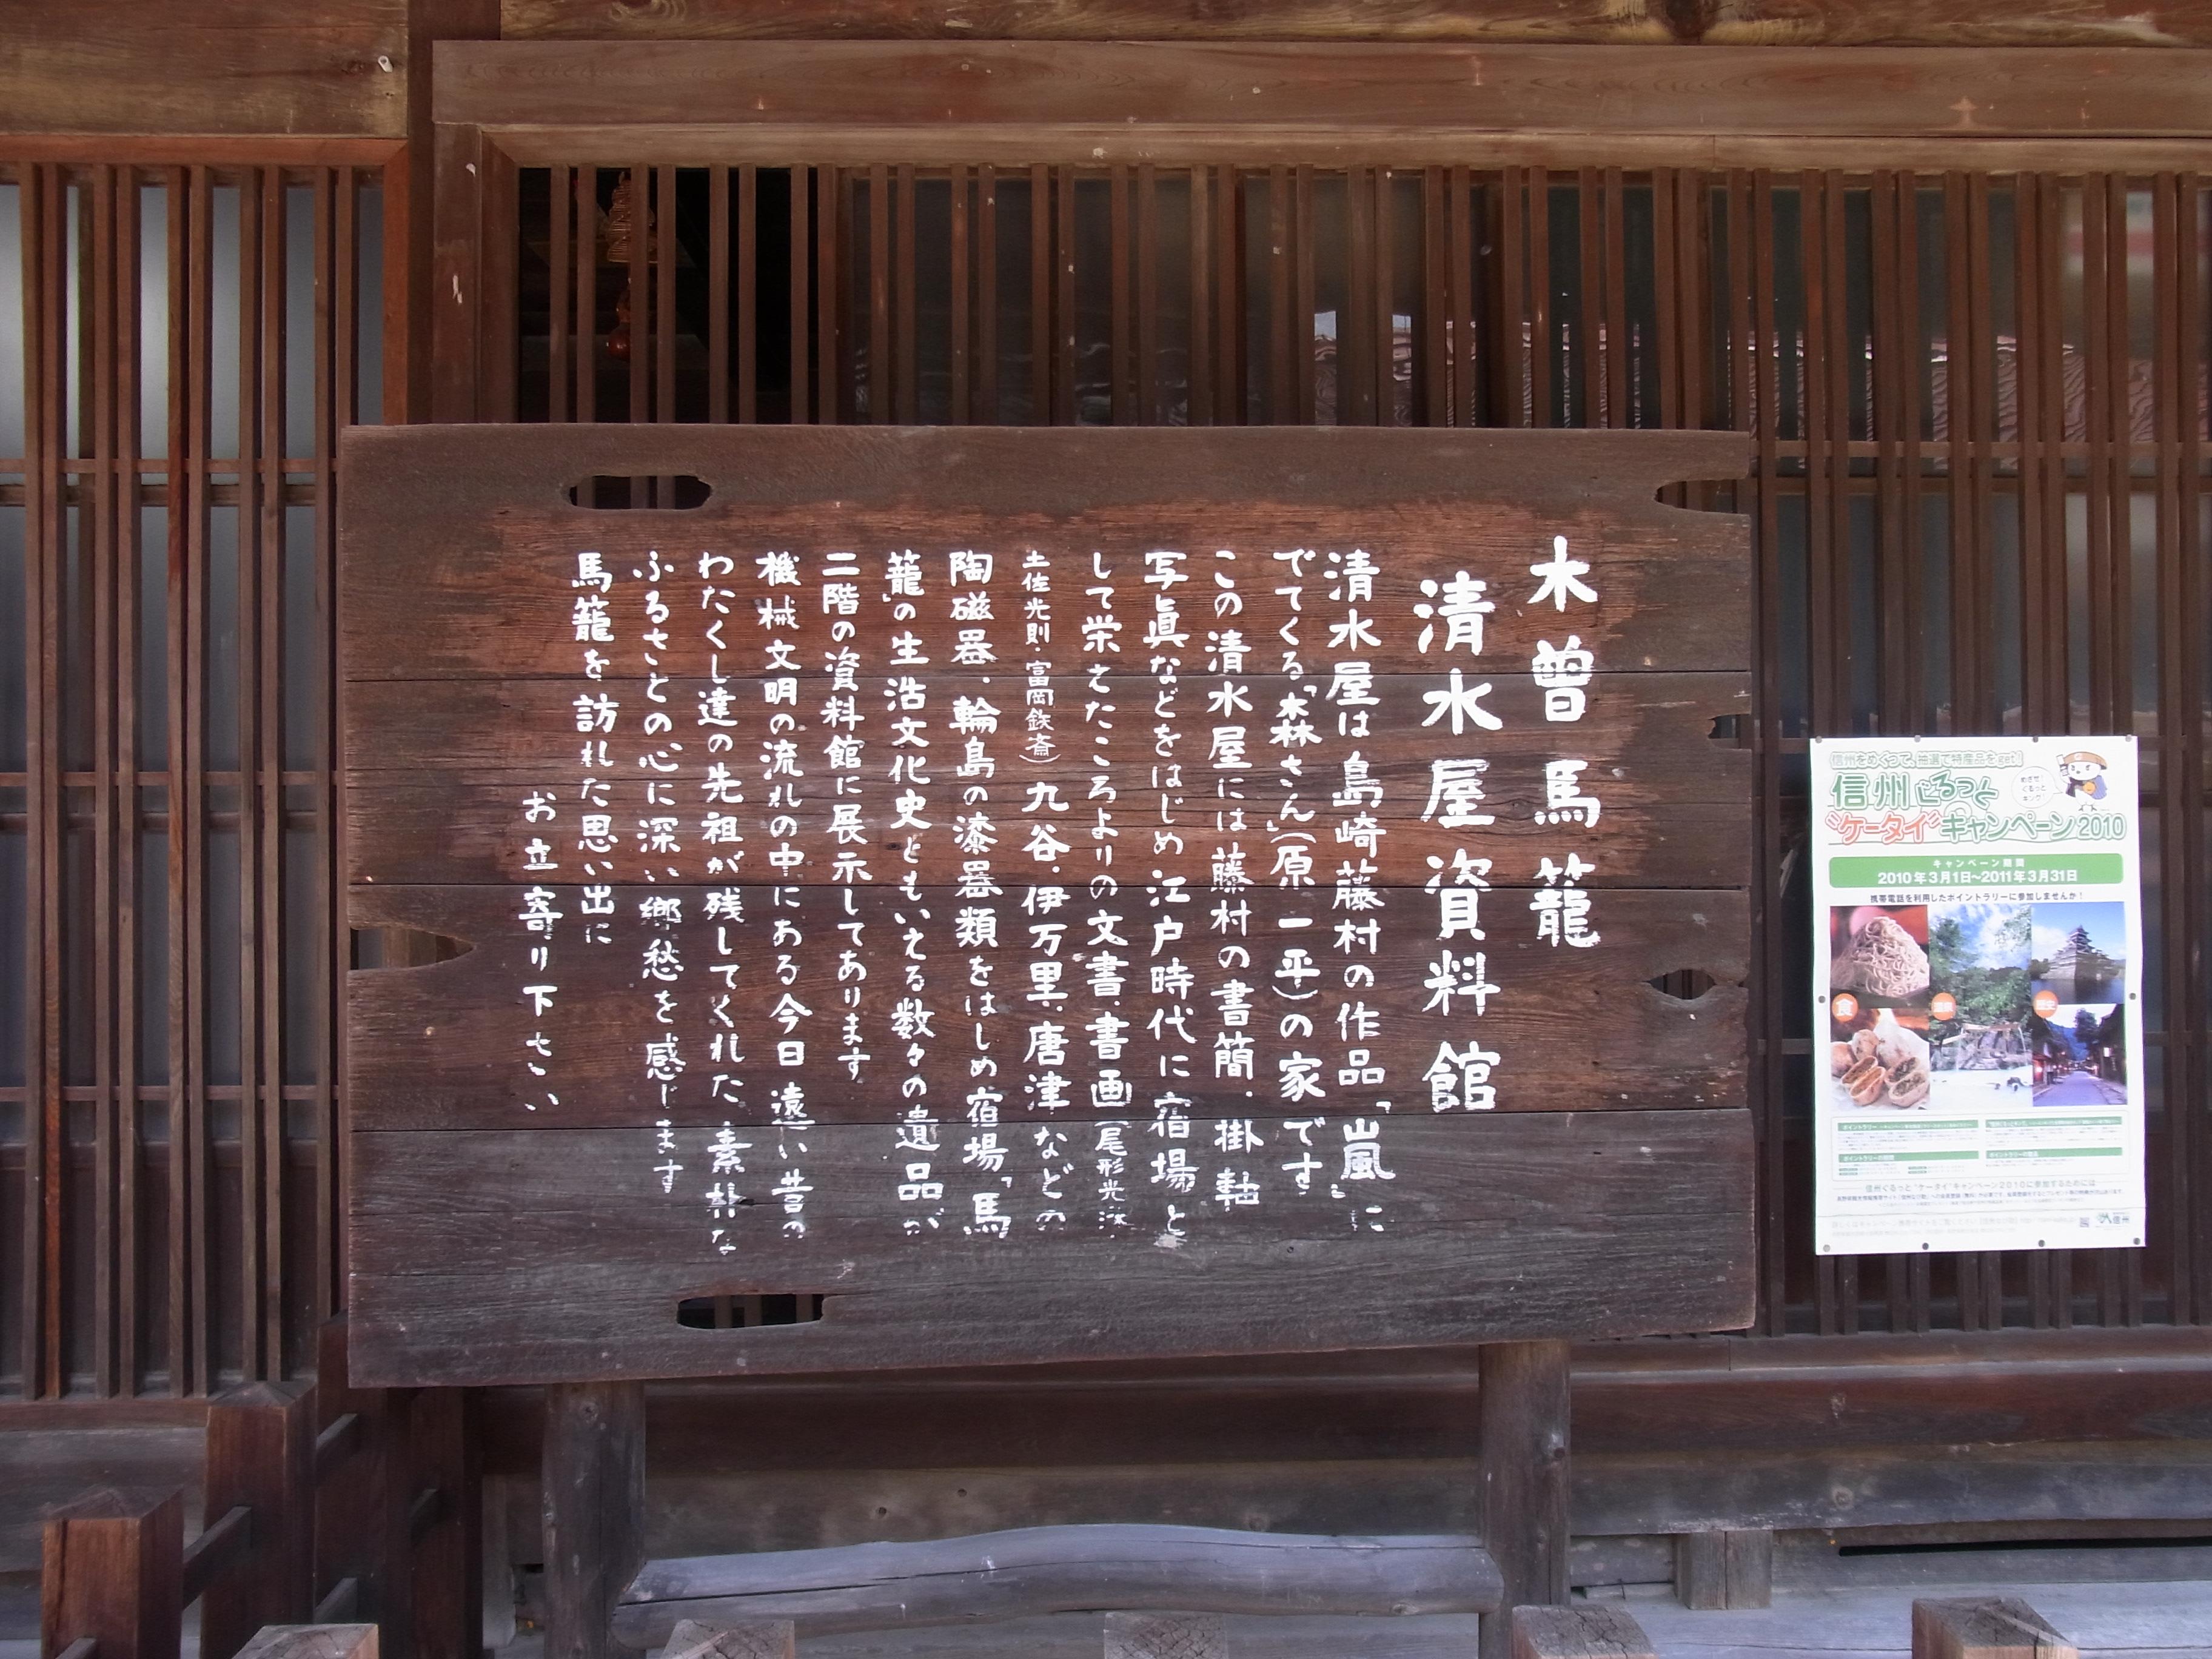 木曽馬籠
清水屋資料館
清水屋は島崎藤村の作品「嵐」に
でてくる「森さん」(原一平)の家です
この清水屋には藤村の書簡、掛軸
写眞などをはじめ江戸時代に宿場と
して栄えたころよりの文書、書画(尾形光琳
土佐光則・富岡鉄斎)九谷、伊万里、唐津などの
陶磁器、輪島の漆器類をはじめ宿場「馬
籠」の生活文化史ともいえる数々の遺品が
二階の資料館に展示してあります
機械文明の流れの中にある今日 遠い昔の
わたくし達の先祖が残してくれた素朴な
ふるさとの心に深い郷愁を感じます
馬籠を訪れた思い出に
お立寄り下さい
信州をめぐって、抽選で特産品をget!
信州ぐるっと
"ケータイ"キャンペーン2010
めざせ!ぐるっとキング
キャンペーン期間
2010年3月1日~2011年3月31日
携帯電話を利用したポイントラリーに参加しませんか!
食
歴史
信州ぐるっと"ケータイ"キャンペーン2010に参加するためには